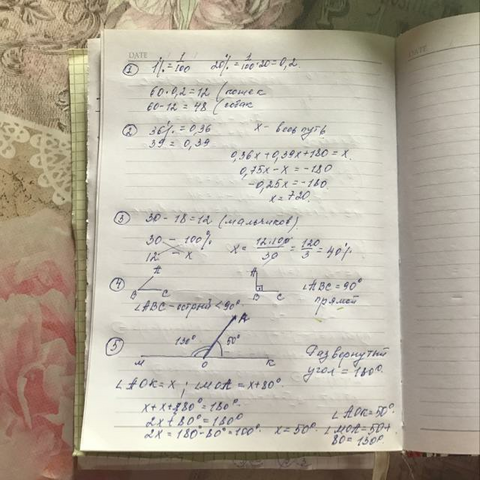 DATE
① 1% = 1/100 20% = 1/100·20 = 0,2
60·0,2 = 12 (кошек
60-12 = 48 (собак
② 36% = 0,36 X - весь путь
39 = 0,39
0,36x+0,39x+180 = x
0,75x-x = -180
-0,25x = -180
x = 720.
③ 30-18 = 12 (мальчиков)
30 - 100%
12 - x
X = 12·100/30 = 120/3 = 40%
④ A A ∠ABC = 90°
B C B C прямой
∠ABC - острый < 90°.
⑤ A
130° 50° Развернутый
M O K угол = 180°.
∠AOK = x ; ∠MOA = x+80°
x+x+80° = 180°
2x+80° = 180° ∠AOK = 50°
2x = 180-80° = 100° x = 50° ∠MOA = 50+
80 = 130°